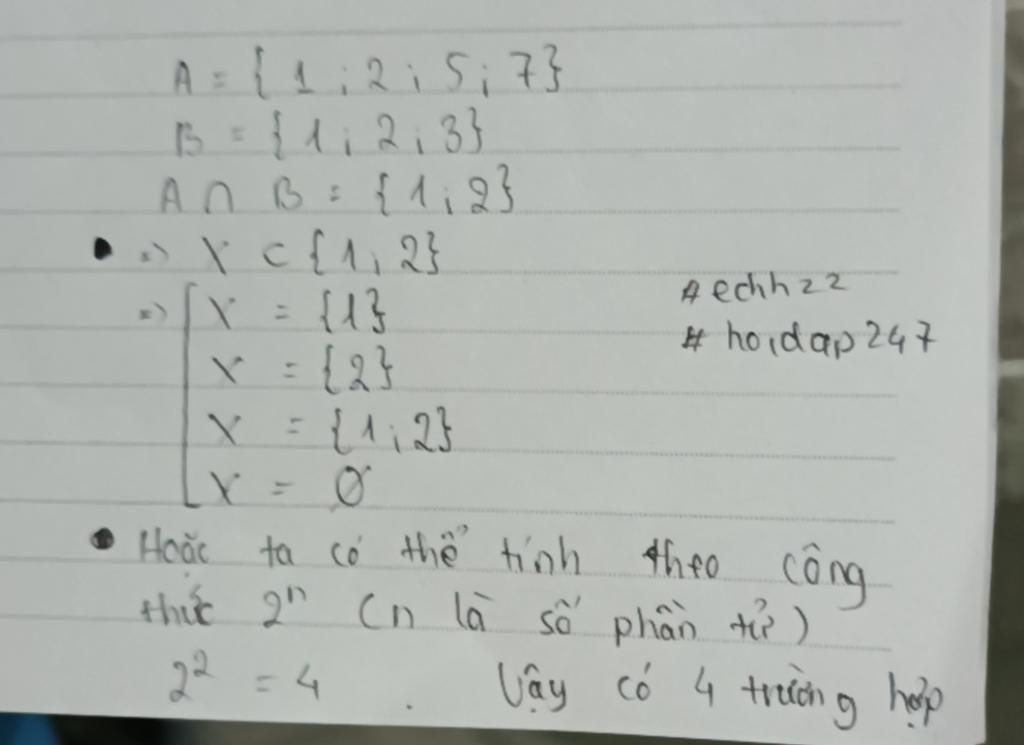 A = { 1 ; 2 ; 5 ; 7}
B = { 1 ; 2 ; 3}
A ∩ B = { 1 ; 2}
• => X ⊂ {1 ; 2}
=> [ X = {1}
X = {2}
X = {1 ; 2}
X = Ø
# echhzz
# hoidap247
• Hoặc ta có thể tính theo công
thức 2ⁿ (n là số phần tử)
2² = 4 . Vậy có 4 trường hợp